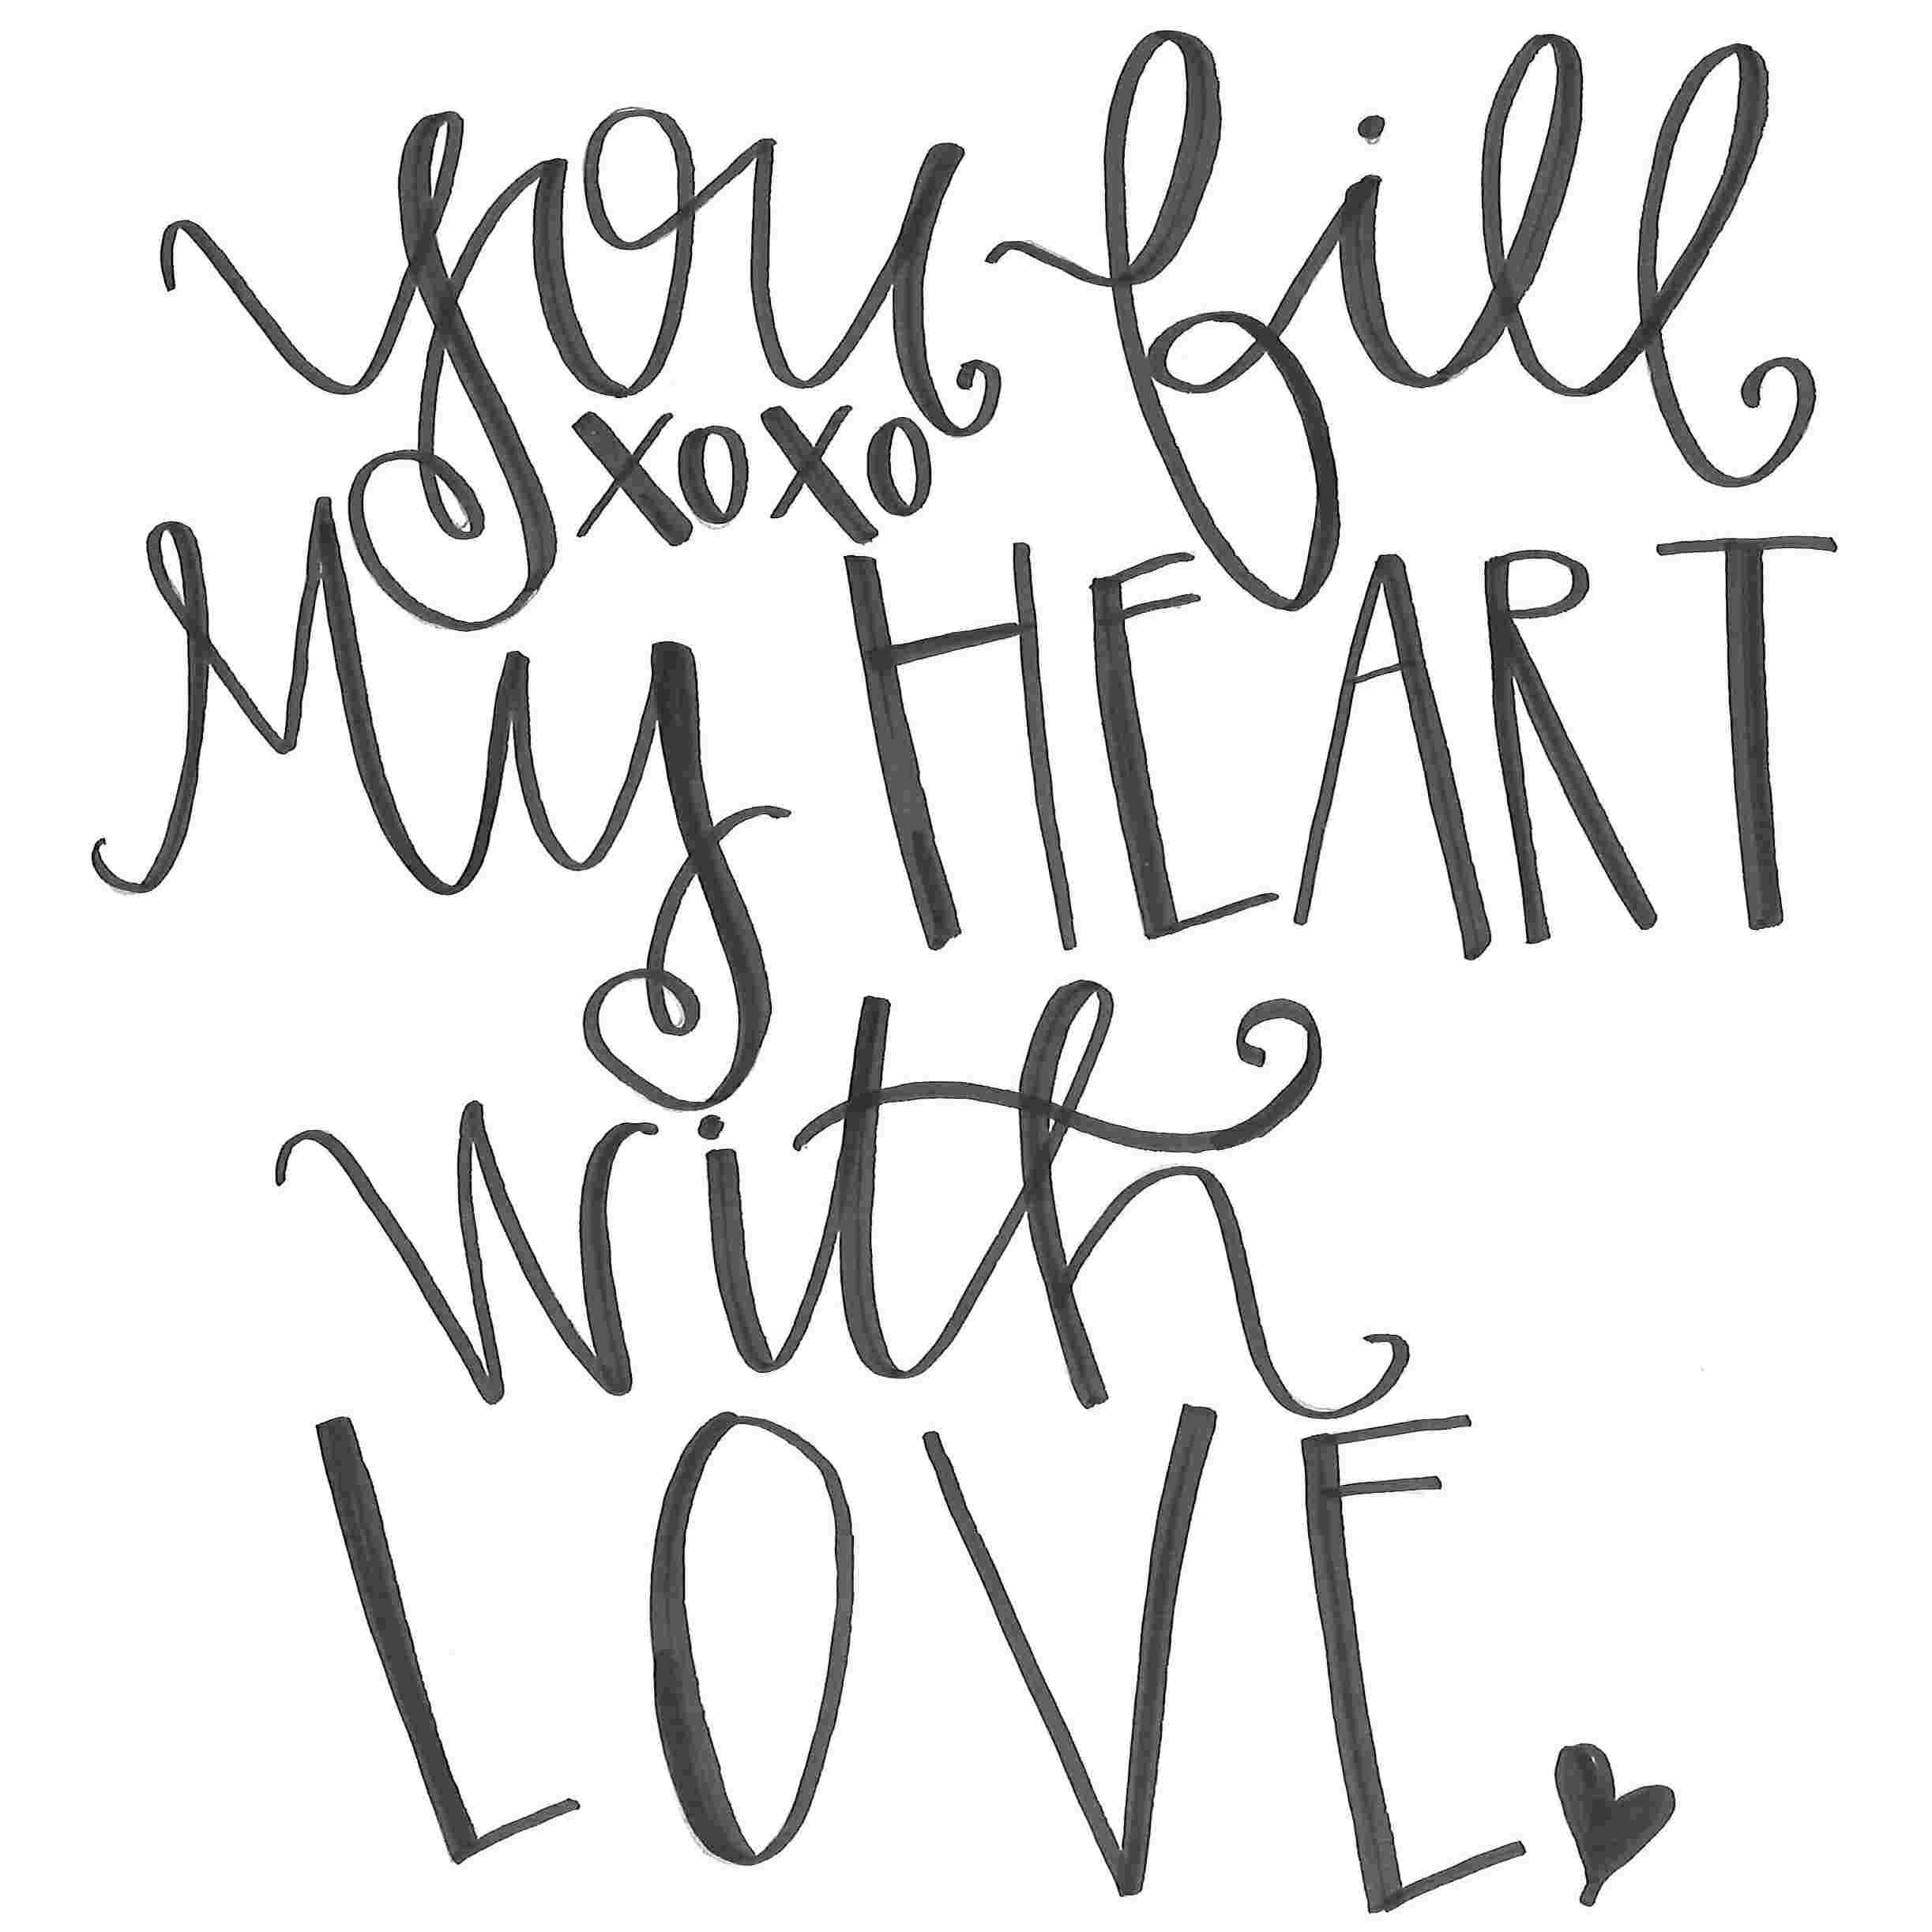 you fill
xoxo
My HEART
with
LOVE.